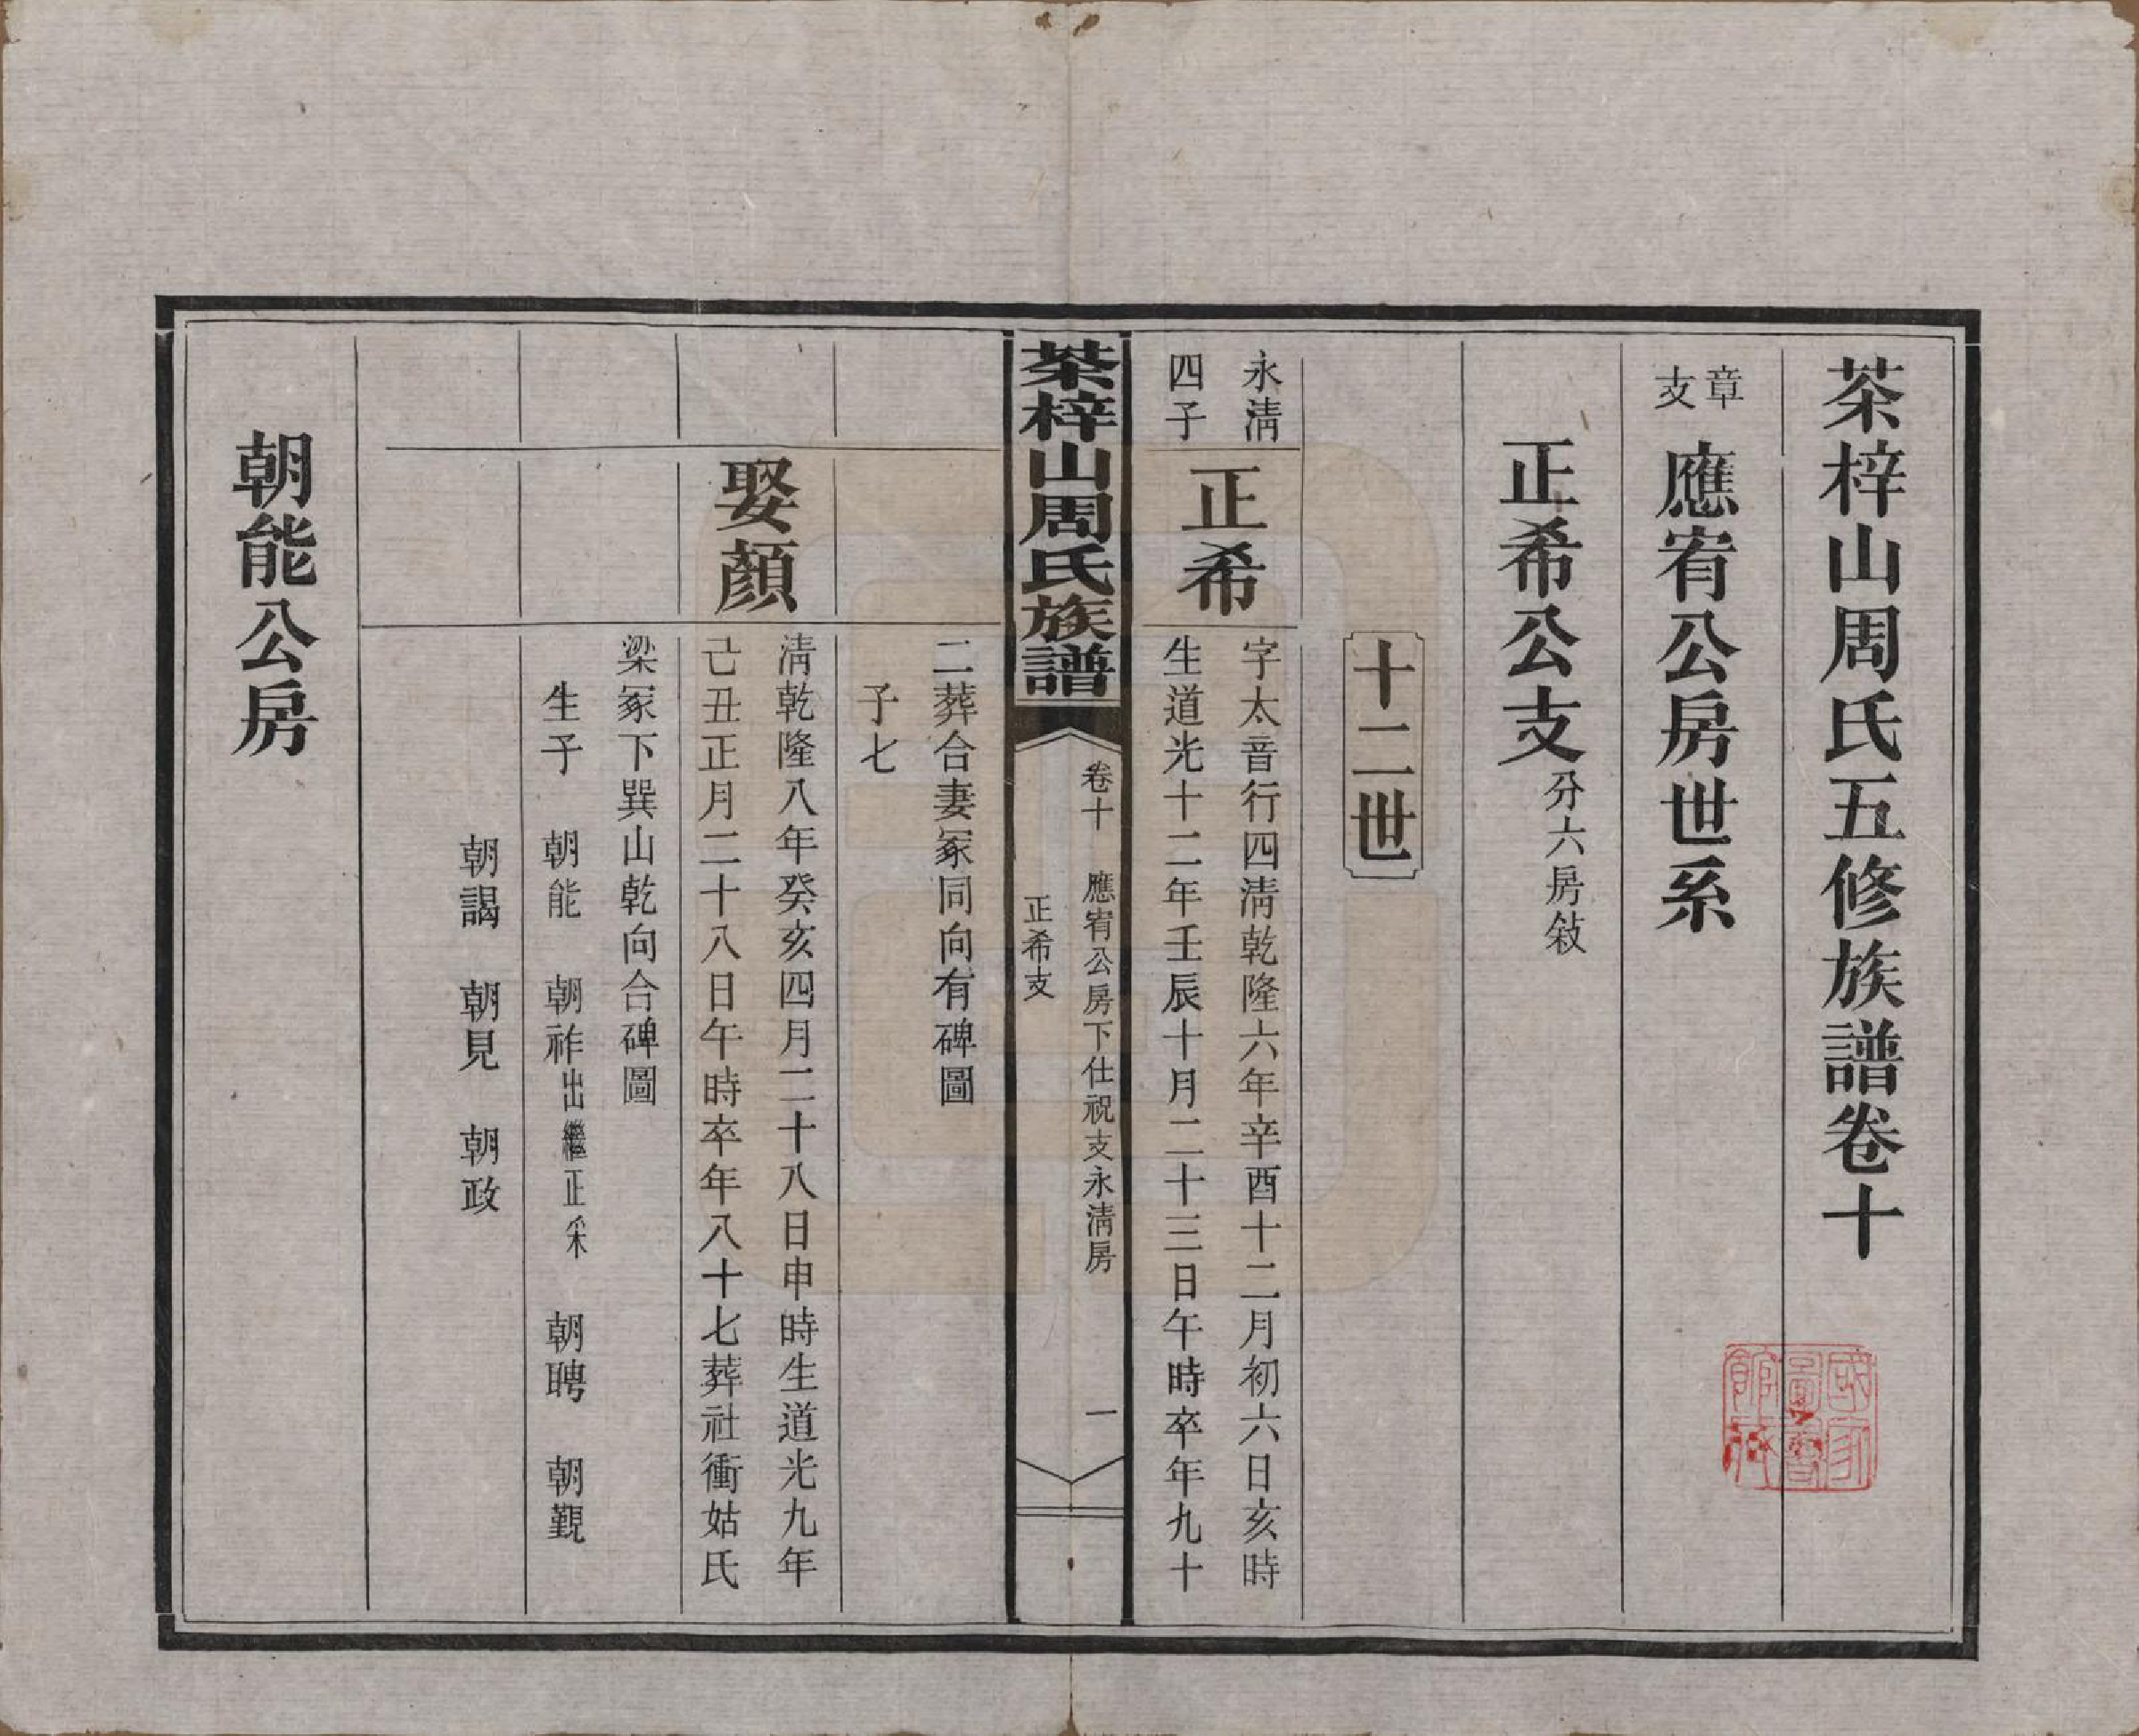 茶梓山周氏五修族譜卷十
章支
應宥公房世系
正希公支
分六房敘
十二世
永清
四子
正希
字太音行四清乾隆六年辛酉十二月初六日亥時
生道光十二年壬辰十月二十三日午時卒年九十
茶梓山周氏族譜
卷十
應宥公房下仕祝支永清房
正希支
一
二葬合妻冢同向有碑圖
子七
娶顏
清乾隆八年癸亥四月二十八日申時生道光九年
己丑正月二十八日午時卒年八十七葬社衝姑氏
梁冢下巽山乾向合碑圖
生子 朝能 朝祚出繼正采 朝聘 朝觀
朝謁 朝見 朝政
朝能公房
國家圖書館藏